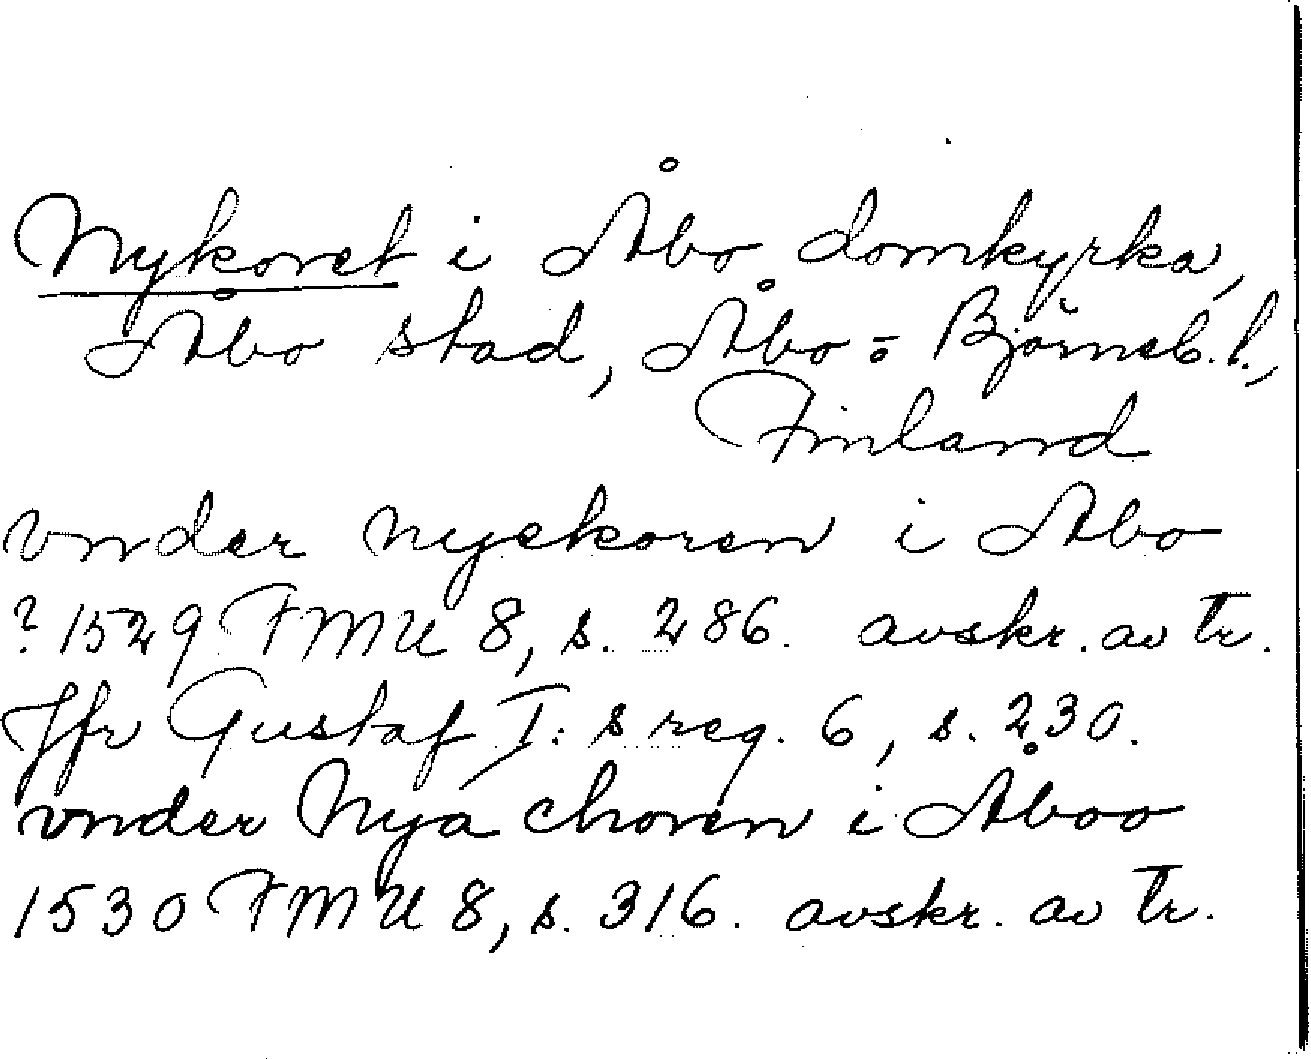 Nykoret i Åbo domkyrka,
Åbo stad, Åbo= Björneb. l.,
Finland
vnder nyekoren i Abo
? 1529 FMU 8, s. 286. avskr. av tr.
Jfr Gustaf I: s reg. 6, s. 230.
vnder Nya choren i Åboo
1530 FMU 8, s. 316. avskr. av tr.